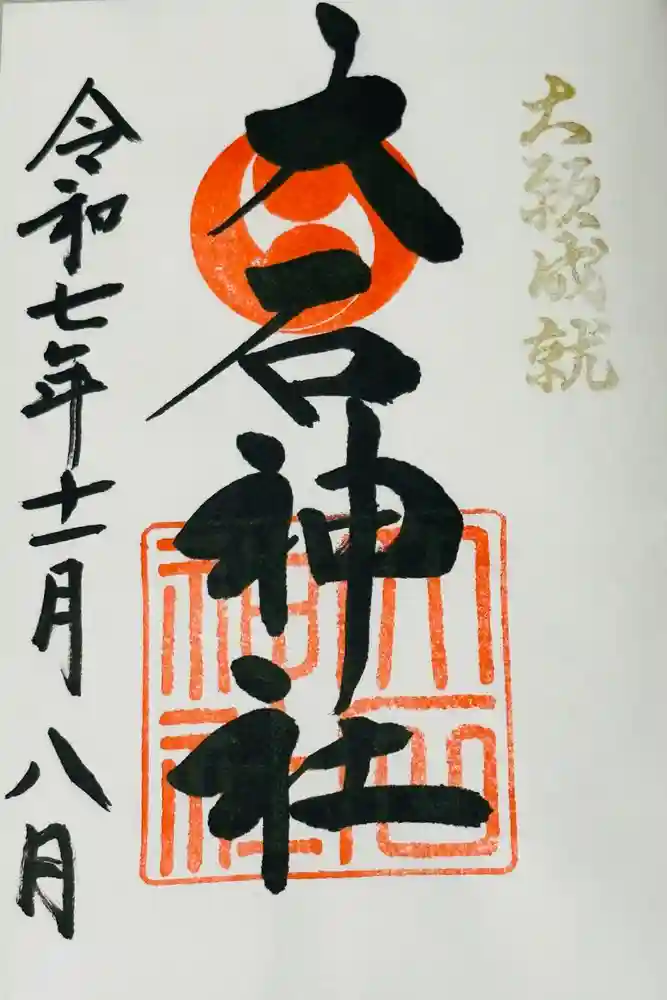 大願成就
大石神社
大石
神社
令和七年十一月八月